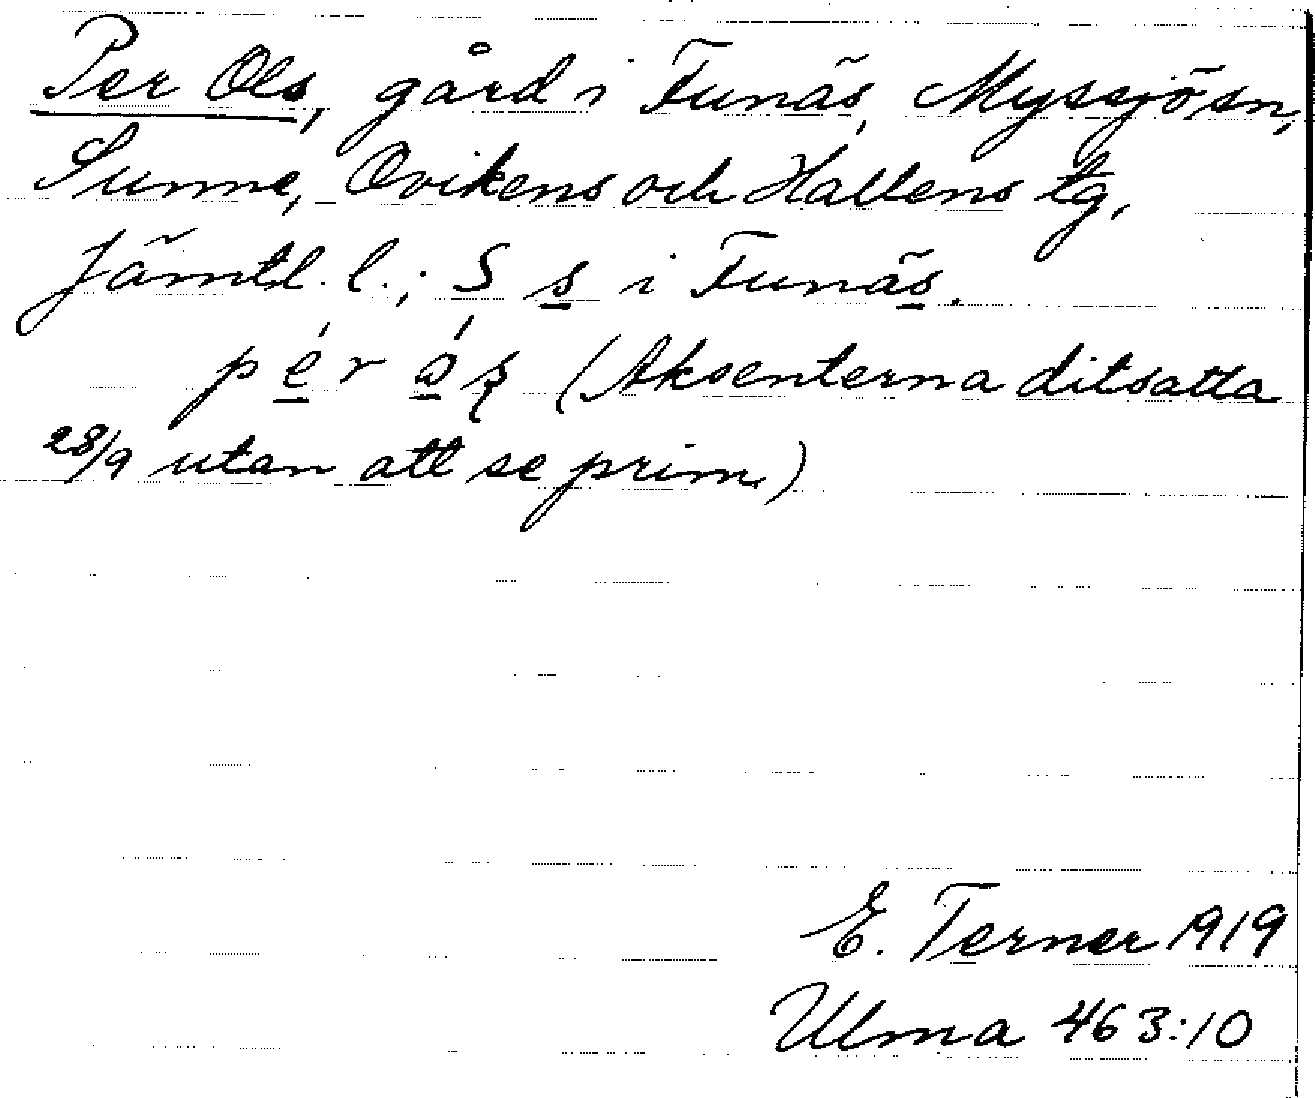 Per Ols, gård i Funäs, Myssjö sn,
Sunne, Ovikens och Hallens tg,
Jämtl. l.; S s i Funäs.
pér ás̨ (Aksenterna ditsatta
28/9 utan att se prim.)
E. Terner 1919
Ulma 463:10